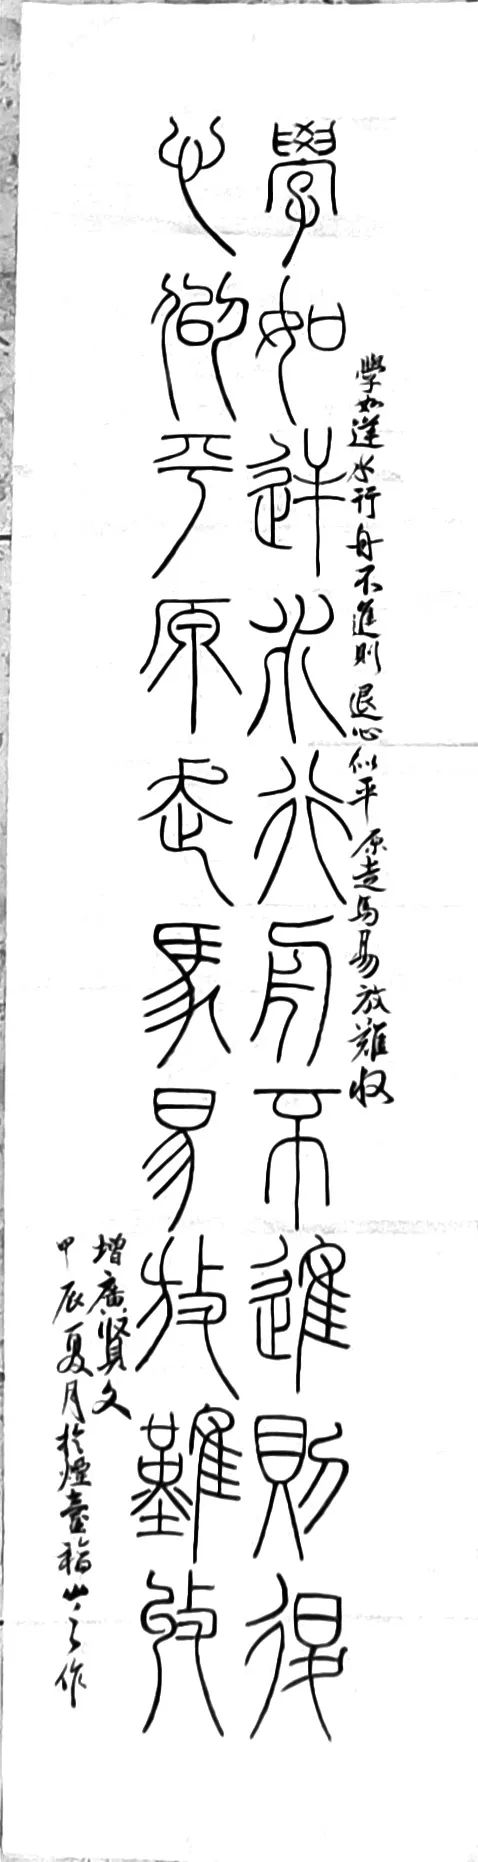 學如逆水行舟不進則退心似平原走馬易放難收
學如逆水行舟不進則退
心似平原走馬易放難收
增廣賢文
甲辰夏月於煙臺福山之作